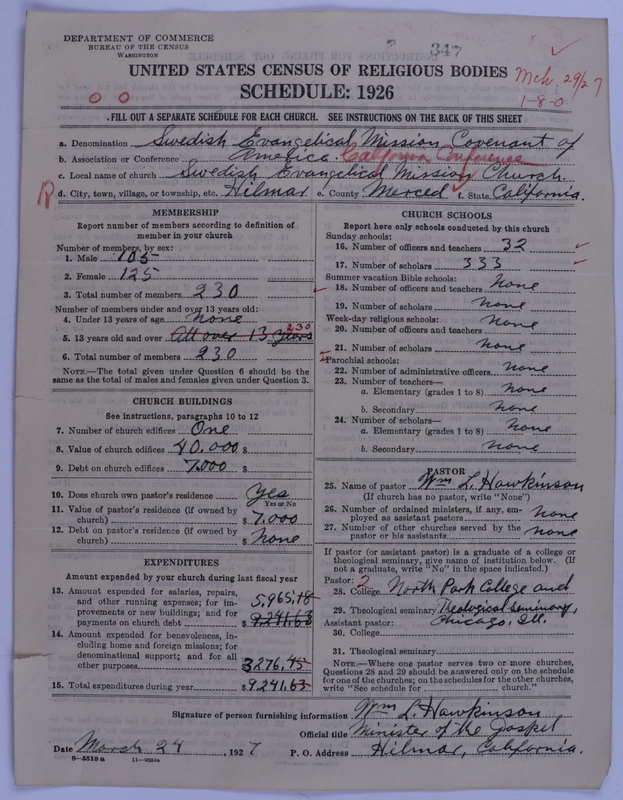 DEPARTMENT OF COMMERCE
BUREAU OF THE CENSUS
WASHINGTON
347
UNITED STATES CENSUS OF RELIGIOUS BODIES
SCHEDULE: 1926
Mch 29/27
1-8-0
FILL OUT A SEPARATE SCHEDULE FOR EACH CHURCH. SEE INSTRUCTIONS ON THE BACK OF THIS SHEET
a. Denomination Swedish Evangelical Mission Covenant of
b. Association or Conference America. California Conference
c. Local name of church Swedish Evangelical Mission Church.
R d. City, town, village, or township, etc. Hilmar e. County Merced f. State California.
MEMBERSHIP
Report number of members according to definition of
member in your church
Number of members, by sex:
1. Male 105
2. Female 125
3. Total number of members 230
Number of members under and over 13 years old:
4. Under 13 years of age none
230
5. 13 years old and over All over 13 years
6. Total number of members 230
NOTE.—The total given under Question 6 should be
the same as the total of males and females given under Question 3.
CHURCH BUILDINGS
See instructions, paragraphs 10 to 12
7. Number of church edifices One
8. Value of church edifices 40.000 $
9. Debt on church edifices 7.000 $
10. Does church own pastor's residence Yes
Yes or No
11. Value of pastor's residence (if owned by
church) $ 7.000
12. Debt on pastor's residence (if owned by
church) $ None
EXPENDITURES
Amount expended by your church during last fiscal year
13. Amount expended for salaries, repairs,
and other running expenses; for im-
provements or new buildings; and for
payments on church debt $
5.965.18
9241.63
14. Amount expended for benevolences, in-
cluding home and foreign missions; for
denominational support; and for all
other purposes 3276.45
15. Total expenditures during year $ 9.241.63
CHURCH SCHOOLS
Report here only schools conducted by this church
Sunday schools:
16. Number of officers and teachers 32
17. Number of scholars 333
Summer vacation Bible schools:
18. Number of officers and teachers None
19. Number of scholars None
Week-day religious schools:
20. Number of officers and teachers None
21. Number of scholars None
Parochial schools:
22. Number of administrative officers None
23. Number of teachers—
a. Elementary (grades 1 to 8) None
b. Secondary None
24. Number of scholars—
a. Elementary (grades 1 to 8) None
b. Secondary None
PASTOR
25. Name of pastor Wm L. Hawkinson
(If church has no pastor, write "None")
26. Number of ordained ministers, if any, em-
ployed as assistant pastors None
27. Number of other churches served by the
pastor or his assistants None
If pastor (or assistant pastor) is a graduate of a college or
theological seminary, give name of institution below. (If
not a graduate, write "No" in the space indicated.)
Pastor: 2
28. College North Park College and
29. Theological seminary Theological Seminary,
Assistant pastor: Chicago, Ill.
30. College
31. Theological seminary
NOTE.—Where one pastor serves two or more churches,
Questions 28 and 29 should be answered only on the schedule
for one of the churches; on the schedules for the other churches,
write "See schedule for church."
Signature of person furnishing information Wm L. Hawkinson
Official title Minister of the Gospel
Date March 24, 1927 P. O. Address Hilmar, California.
8-5518 a